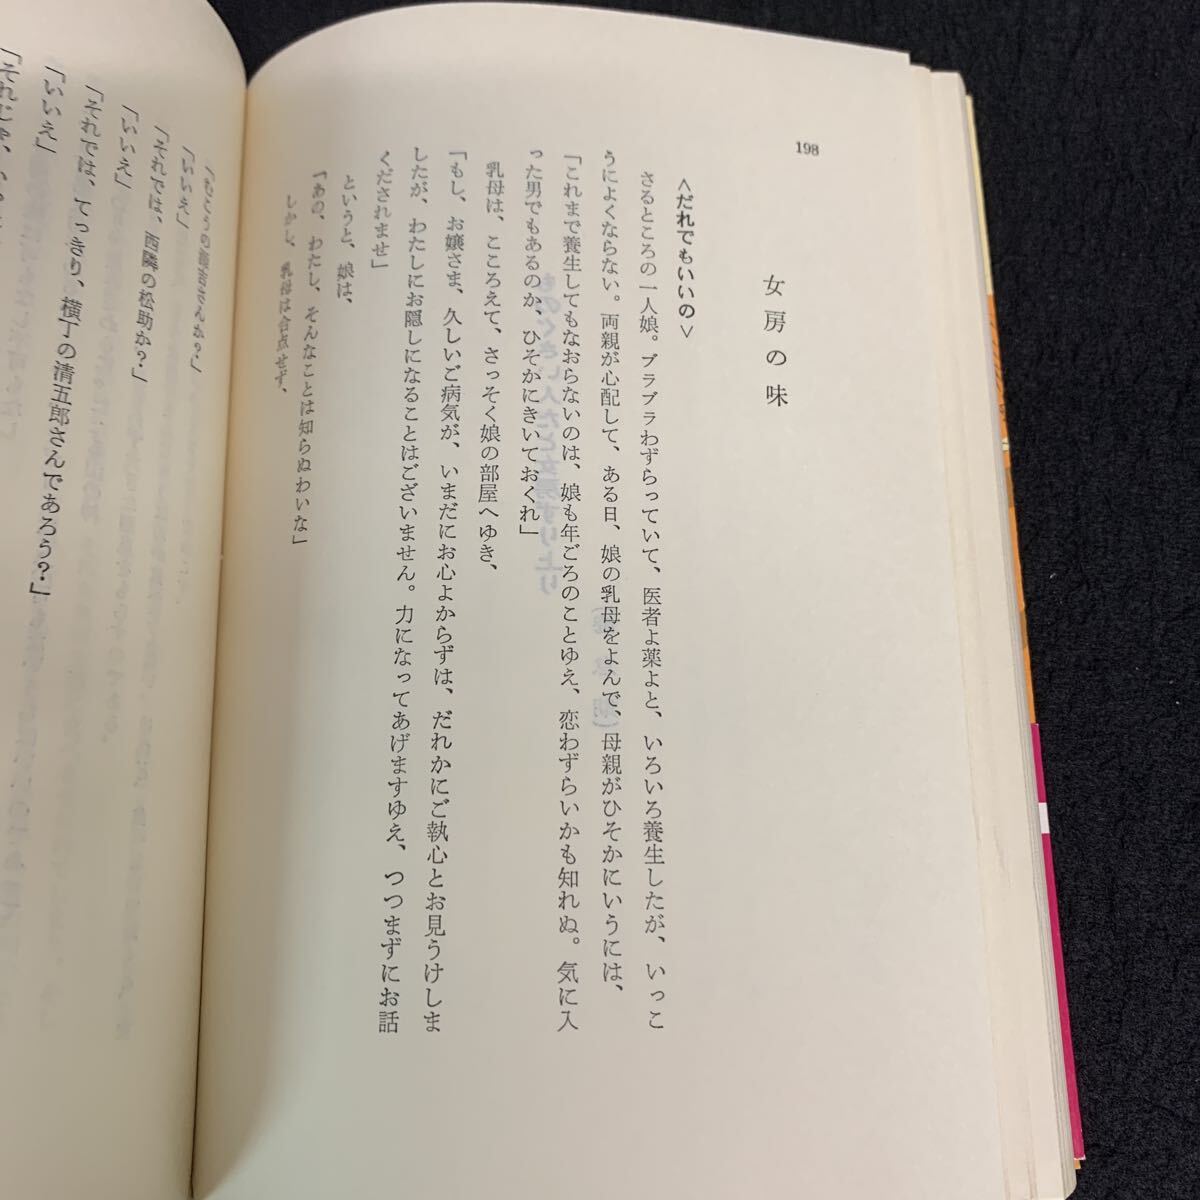 198
女房の味
<だれでもいいの>
さるところの一人娘。ブラブラわずらっていて、医者よ薬よと、いろいろ養生したが、いっこ
うによくならない。両親が心配して、ある日、娘の乳母をよんで、母親がひそかにいうには、
「これまで養生してもなおらないのは、娘も年ごろのことゆえ、恋わずらいかも知れぬ。気に入
った男でもあるのか、ひそかにきいておくれ」
乳母は、こころえて、さっそく娘の部屋へゆき、
「もし、お嬢さま、久しいご病気が、いまだにお心よからずは、だれかにご執心とお見うけしま
したが、わたしにお隠しになることはございません。力になってあげますゆえ、つつまずにお話
くだされませ」
というと、娘は、
「あの、わたし、そんなことは知らぬわいな」
しかし、乳母は合点せず、
「むこうの
さんか?」
「いいえ」
「それでは、西隣の松助か?」
「いいえ」
「それでは、てっきり、横丁の清五郎さんであろう?」
「いいえ」
「それじゃ、